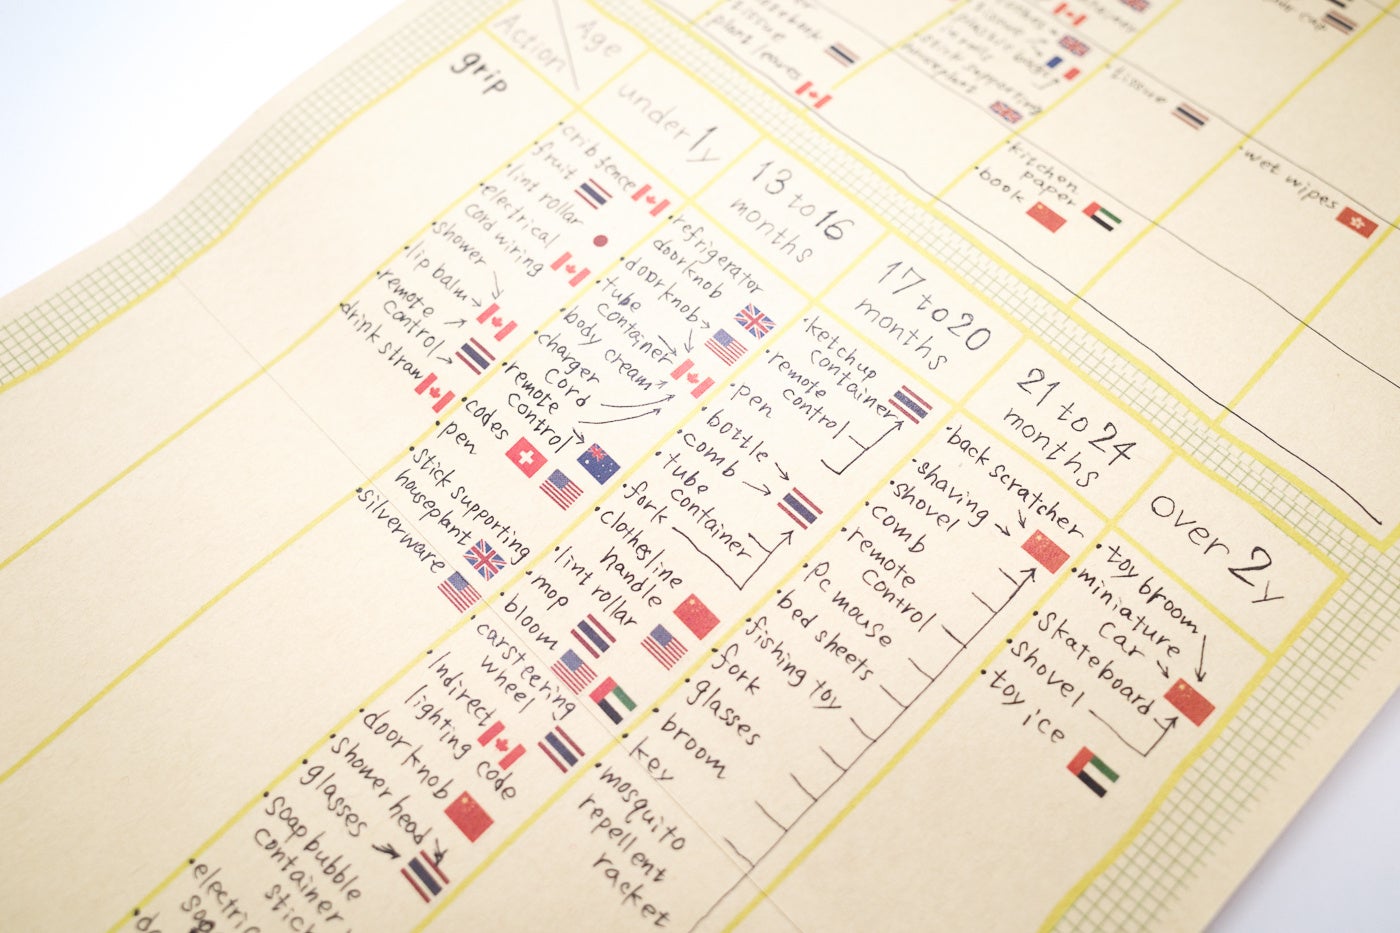 tissue
plant leaves
houseplant
tissue
kitchen
paper
book
wet wipes
Age
Action
grip
under 1y
crib fence
fruit
lint rollar
electrical
cord wiring
shower
lip balm
remote
control
drink straw
13 to 16
months
refrigerator
doorknob
doorknob
tube
container
body cream
charger
cord
remote
control
codes
pen
stick supporting
houseplant
silverware
17 to 20
months
ketchup
container
remote
control
pen
bottle
comb
tube
container
fork
clothesline
handle
lint rollar
mop
bloom
carsteering
wheel
Indirect
lighting code
doorknob
shower head
glasses
soap bubble
container
stick
21 to 24
months
back scratcher
shaving
shovel
comb
remote
control
pc mouse
bed sheets
fishing toy
fork
glasses
broom
key
mosquito
repellent
racket
over 2y
toy broom
miniature
car
skateboard
shovel
toy ice